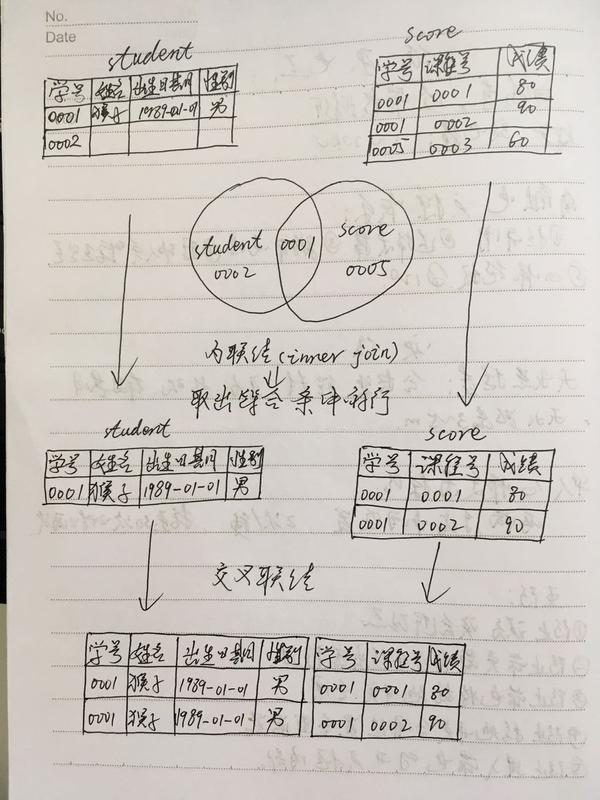 No.
Date
student
score
学号 姓名 出生日期 性别
0001 猴子 1989-01-01 男
0002
学号 课程号 成绩
0001 0001 80
0001 0002 90
0005 0003 60
student 0001 score
0002 0005
内联结(inner join)
取出符合条件的行
student
score
学号 姓名 出生日期 性别
0001 猴子 1989-01-01 男
学号 课程号 成绩
0001 0001 80
0001 0002 90
交叉联结
学号 姓名 出生日期 性别 学号 课程号 成绩
0001 猴子 1989-01-01 男 0001 0001 80
0001 猴子 1989-01-01 男 0001 0002 90